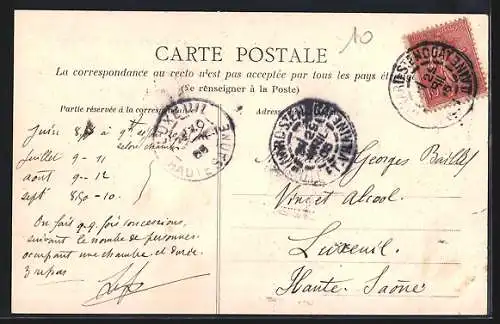 10
CARTE POSTALE
La correspondance au recto n'est pas acceptée par tous les pays
(Se renseigner à la Poste)
Partie réservée à la correspondance
Adres
Juin 8f50 à 9f
selon chambre
Juillet 9 - 11
août 9 - 12
sept 8f50 - 10 -
On fait q.q. fois concessions,
suivant le nombre de personnes
occupant une chambre et durée
3 repas
Georges
Vins et Alcool.
Luxeuil.
Haute Saône
HAUTE SAONE